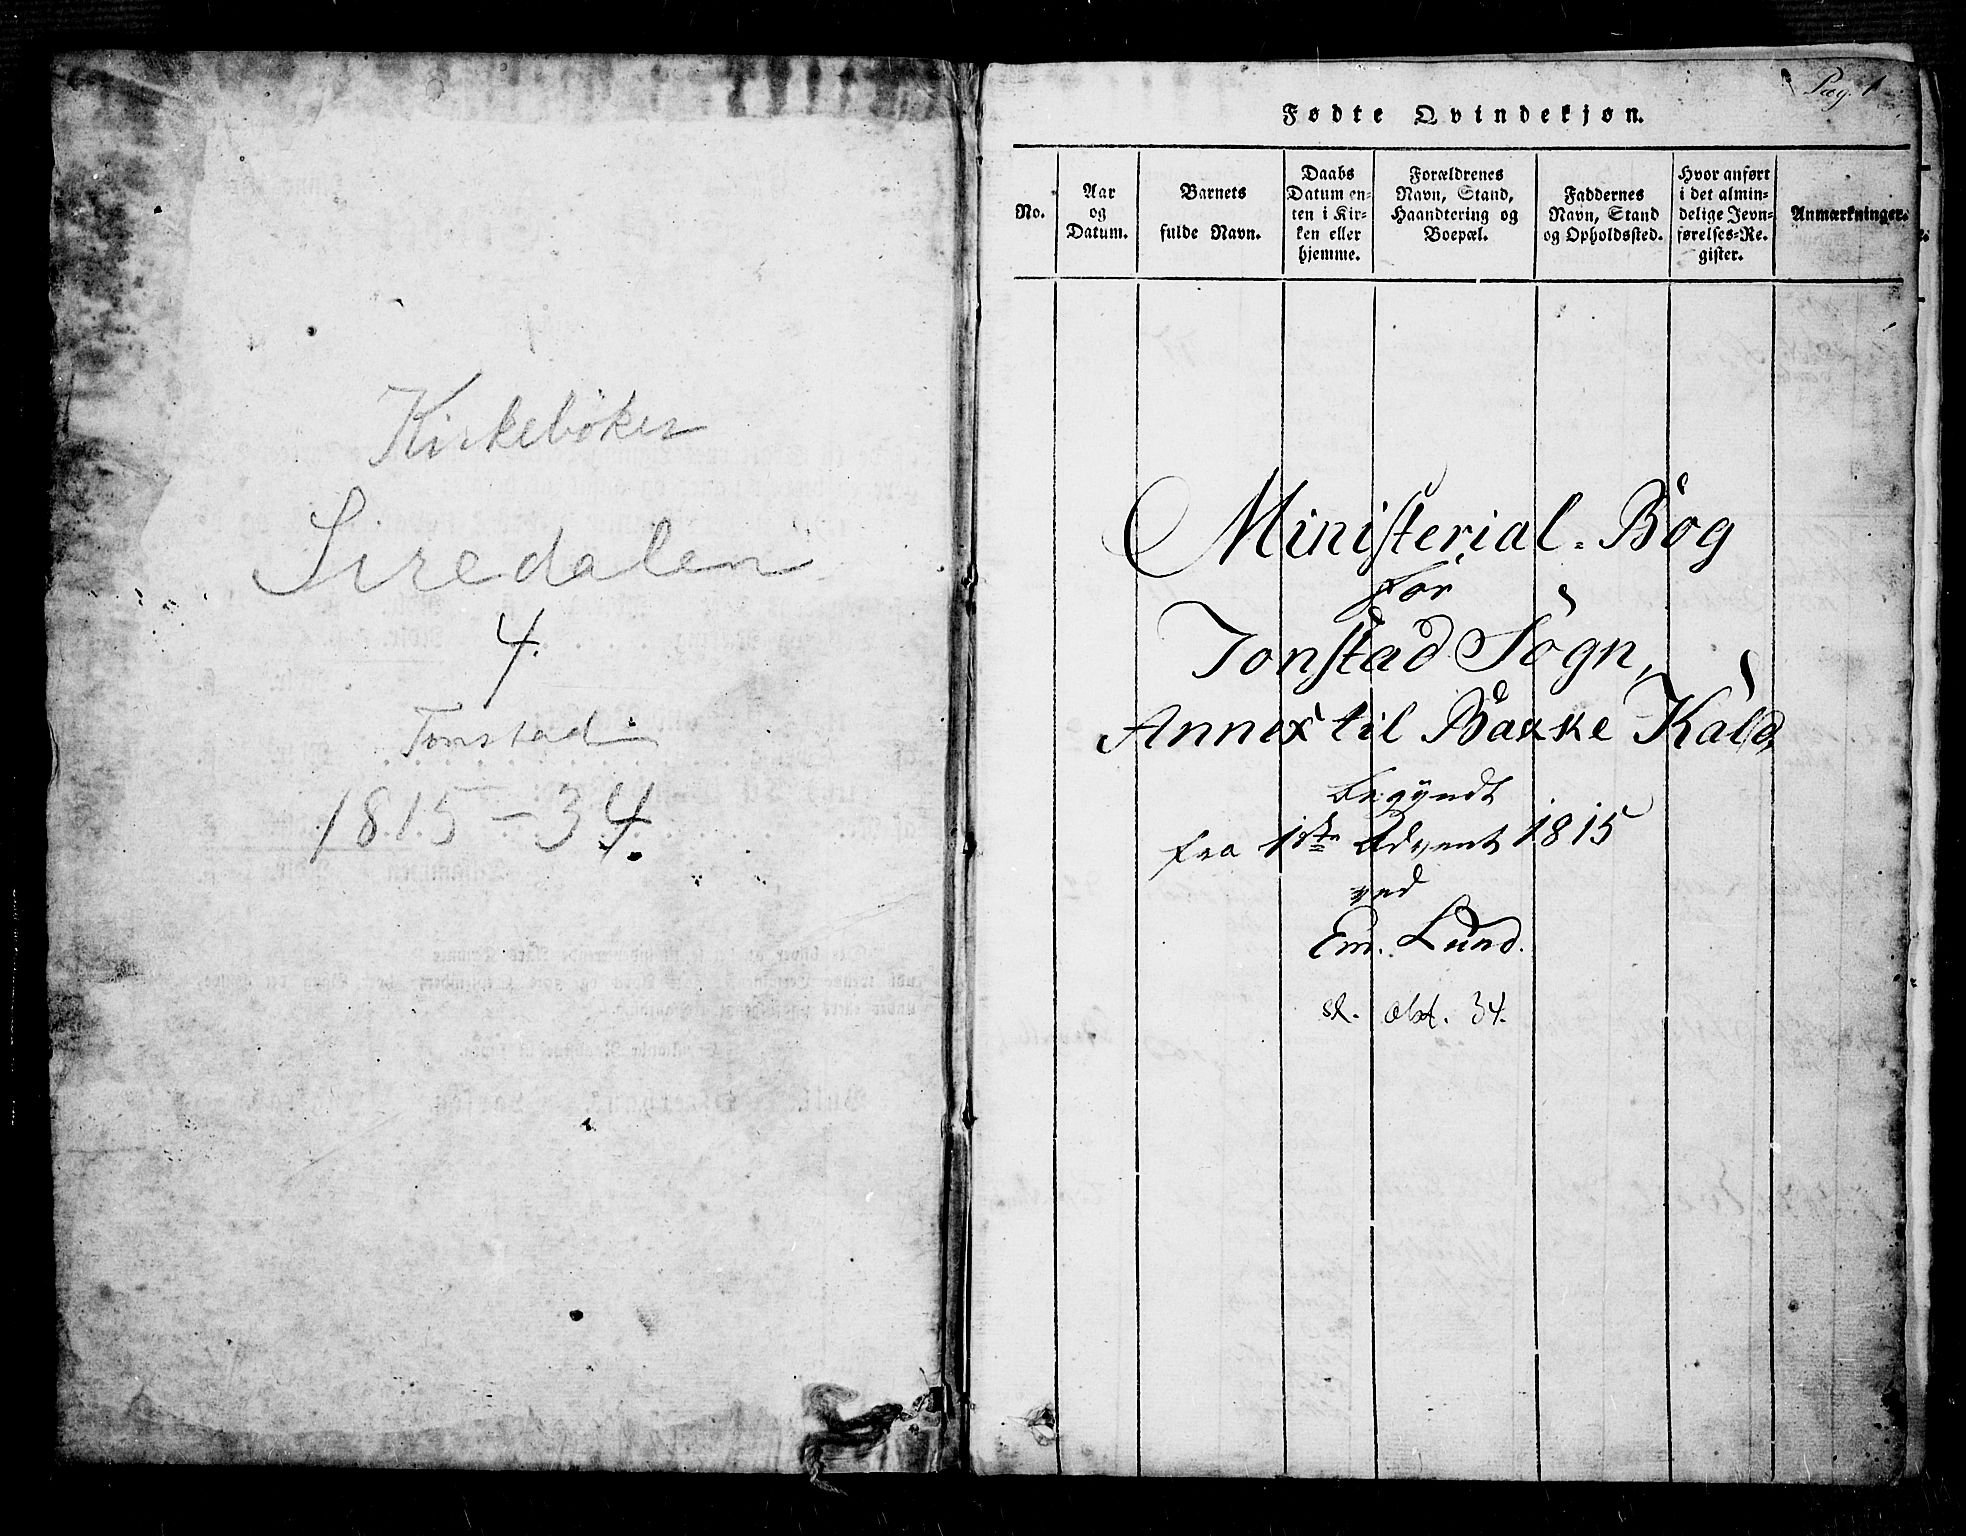 Kirkebøker
Siredalen
4.
Tonstad
1815-34.
Pag. 1
Fødte Qvindekjøn.
No.
Aar
og
Datum.
Barnets
fulde Navn.
Daabs
Datum en-
ten i Kir-
ken eller
hjemme.
Forældrenes
Navn, Stand,
Haandtering og
Boepæl.
Faddernes
Navn, Stand
og Opholdssted.
Hvor anført
i det almin-
delige Jevn-
førelses-Re-
gister.
Anmærkninger.
Ministerial-Bog
for
Tonstad Sogn,
Annex til Bakke Kald,
begyndt
fra 1ste Advent 1815
ved
Em. Lund.
sl. Okt. 34.